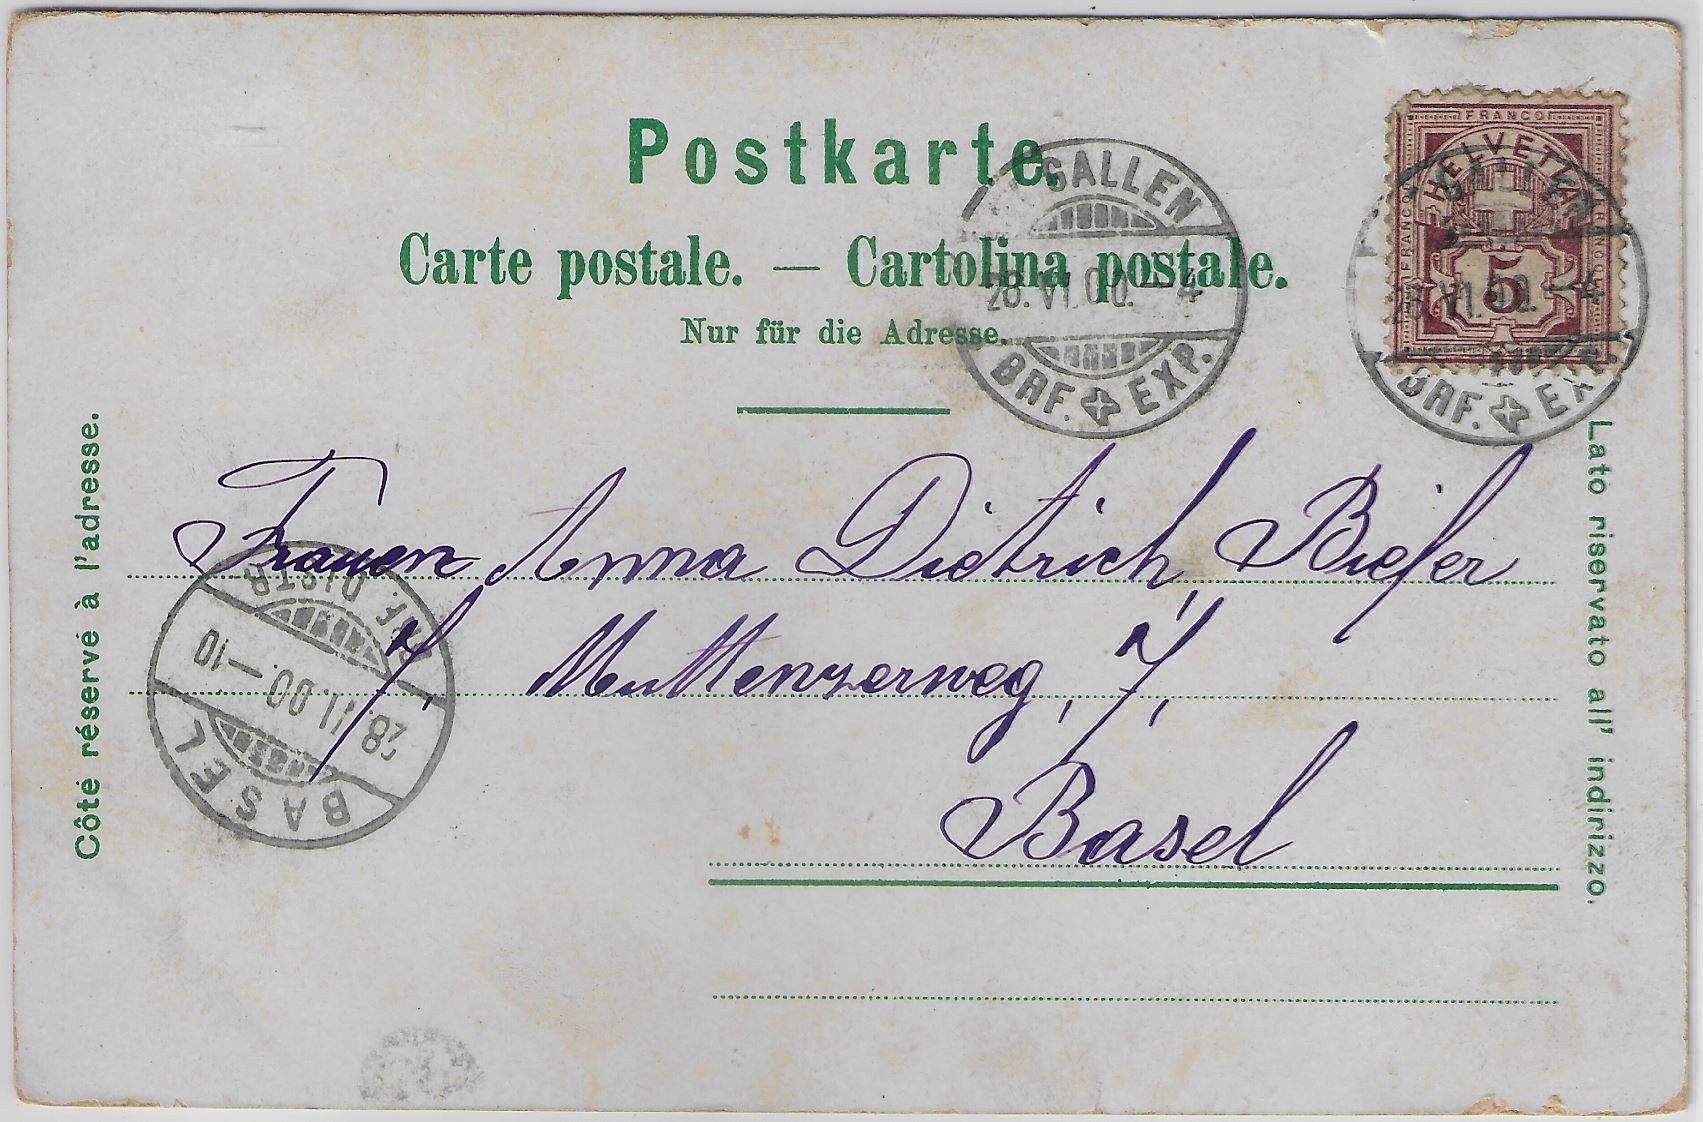 Postkarte.
Carte postale. — Cartolina postale.
Nur für die Adresse.
Côté réservé à l'adresse.
Lato riservato all' indirizzo.
FRANCO
HELVETIA
FRANCO
FRANCO
5
GALLEN
28.VI.00.–4
BRF. EXP.
GALLEN
28.VI.00.–4
BRF. EXP.
Frauen Anna Dietrich, Biefer
Muttenzerweg, 7,
Basel
BASEL
28.VI.00.–10
BRF. DISTR